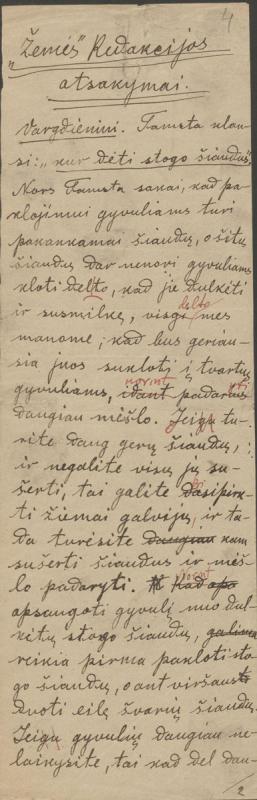 4
„Žemės" Redakcijos
atsakymai.
Vargdieniui. Tamsta klau-
si: „kur dėti stogo šiaudus".
Nors Tamsta sakai, kad pa-
klojimui gyvuliams turi
pakankamai šiaudų, o šitų
šiaudų dar nenori gyvuliams
kloti delto, kad jie dulkėti
ir susmilkę, visgi delto mes
manome, kad bus geriau-
sia juos sukloti į tvartus
gyvuliams, norint idant padarius
daugiau mėšlo. Jeigu tu-
rite daug gerų šiaudų,
ir negalite visų jų su-
šerti, tai galite dasipirk-
ti žiemai galvijų, ir ta-
da turėsite daugiau kam
sušerti šiaudus ir mėš-
lo padaryti. Kad
apsaugoti gyvulį nuo dul-
kėtų stogo šiaudų,
reikia pirma pakloti sto-
go šiaudų, o ant viršaus
duoti eilę švarių šiaudų.
Jeigu gyvulių daugiau ne-
laikysite, tai kad del dau-
/2